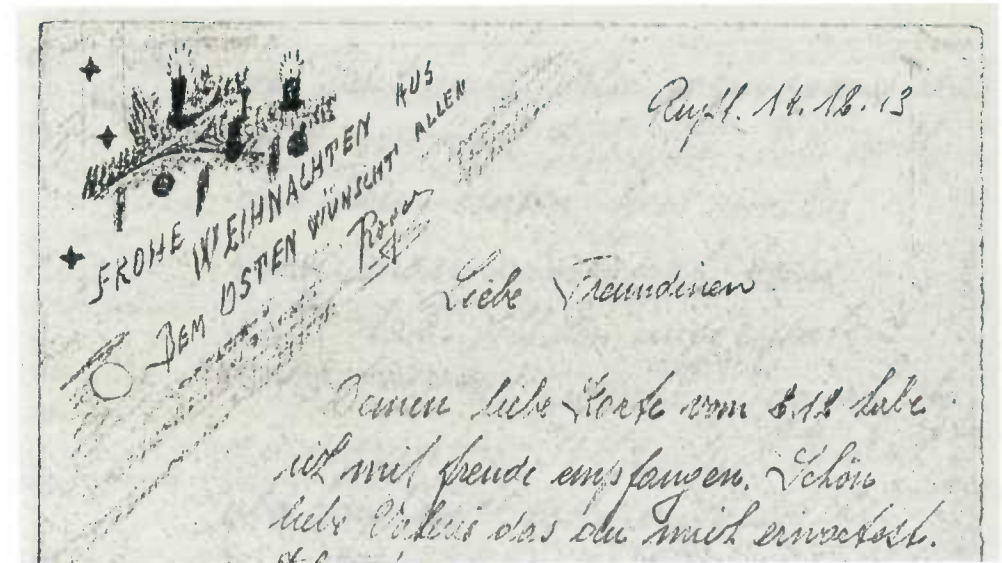 FROHE WEIHNACHTEN AUS
DEM OSTEN WÜNSCHT ALLEN
14.12.13
Liebe Freundinen
liebe Karte vom 8.12 habe
ich mit freude empfangen. Schön
liebe das du mich erwartest.